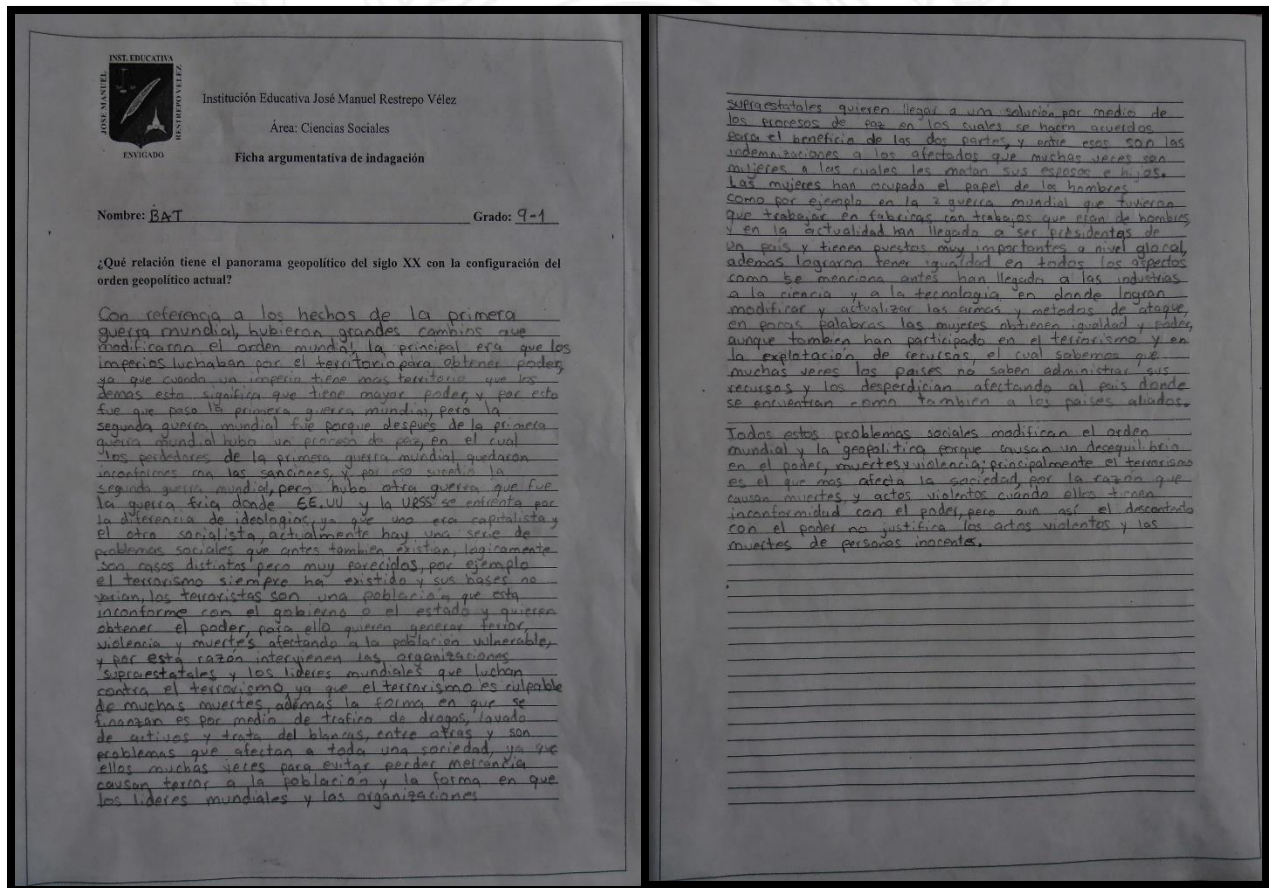 INST. EDUCATIVA
JOSE MANUEL
RESTREPO VÉLEZ
ENVIGADO
Institución Educativa José Manuel Restrepo Vélez
Área: Ciencias Sociales
Ficha argumentativa de indagación
Nombre: BAT Grado: 9-1
¿Qué relación tiene el panorama geopolítico del siglo XX con la configuración del
orden geopolítico actual?
Con referencia a los hechos de la primera
guerra mundial, hubieron grandes cambios que
modificaron el orden mundial, la principal era que los
imperios luchaban por el territorio para obtener poder,
ya que cuando un imperio tiene mas territorio que los
demas esto significa que tiene mayor poder, y por esto
fue que paso la primera guerra mundial, pero la
segunda guerra mundial fue porque despues de la primera
guerra mundial hubo un proceso de paz, en el cual
los perdedores de la primera guerra mundial quedaron
inconformes con las sanciones, y por eso sucedio la
segunda guerra mundial, pero hubo otra guerra que fue
la guerra fria donde EE.UU y la URSS se enfrenta por
la diferencia de ideologias, ya que uno era capitalista y
el otro socialista, actualmente hay una serie de
problemas sociales que antes tambien existian, logicamente
son casos distintos pero muy parecidos, por ejemplo
el terrorismo siempre ha existido y sus bases no
varian, los terroristas son una población que esta
inconforme con el gobierno o el estado y quieren
obtener el poder, para ello quieren generar terror,
violencia y muertes afectando a la población vulnerable,
y por esta razón intervienen las organizaciones
supraestatales y los lideres mundiales que luchan
contra el terrorismo, ya que el terrorismo es culpable
de muchas muertes, ademas la forma en que se
finanzan es por medio de trafico de drogas, lavado
de activos y trata del blancas, entre otras y son
problemas que afectan a toda una sociedad, ya que
ellos muchas veces para evitar perder mercancia
causan terror a la población y la forma en que
los lideres mundiales y las organizaciones
supraestatales quieren llegar a una solución por medio de
los procesos de paz en los cuales se hacen acuerdos
para el beneficio de las dos partes, y entre esos son las
indemnizaciones a los afectados que muchas veces son
mujeres a las cuales les matan sus esposos e hijos.
Las mujeres han ocupado el papel de los hombres
como por ejemplo en la 2 guerra mundial que tuvieron
que trabajar en fabricas con trabajos que eran de hombres
y en la actualidad han llegado a ser presidentas de
un pais y tienen puestos muy importantes a nivel glocal,
ademas lograron tener igualdad en todos los aspectos
como se menciona antes han llegado a las industrias
a la ciencia y a la tecnologia, en donde logran
modificar y actualizar las armas y metodos de ataque,
en pocas palabras las mujeres obtienen igualdad y poder,
aunque tambien han participado en el terrorismo y en
la explotación de recursos, el cual sabemos que
muchas veces los paises no saben administrar sus
recursos y los desperdician afectando al pais donde
se encuentran como tambien a los paises aliados.
Todos estos problemas sociales modifican el orden
mundial y la geopolitica porque causan un decequilibrio
en el poder, muertes y violencia; principalmente el terrorismo
es el que mas afecta la sociedad, por la razón que
causan muertes y actos violentos cuando ellos tienen
inconformidad con el poder, pero aun así el descontento
con el poder no justifica los actos violentos y las
muertes de personas inocentes.